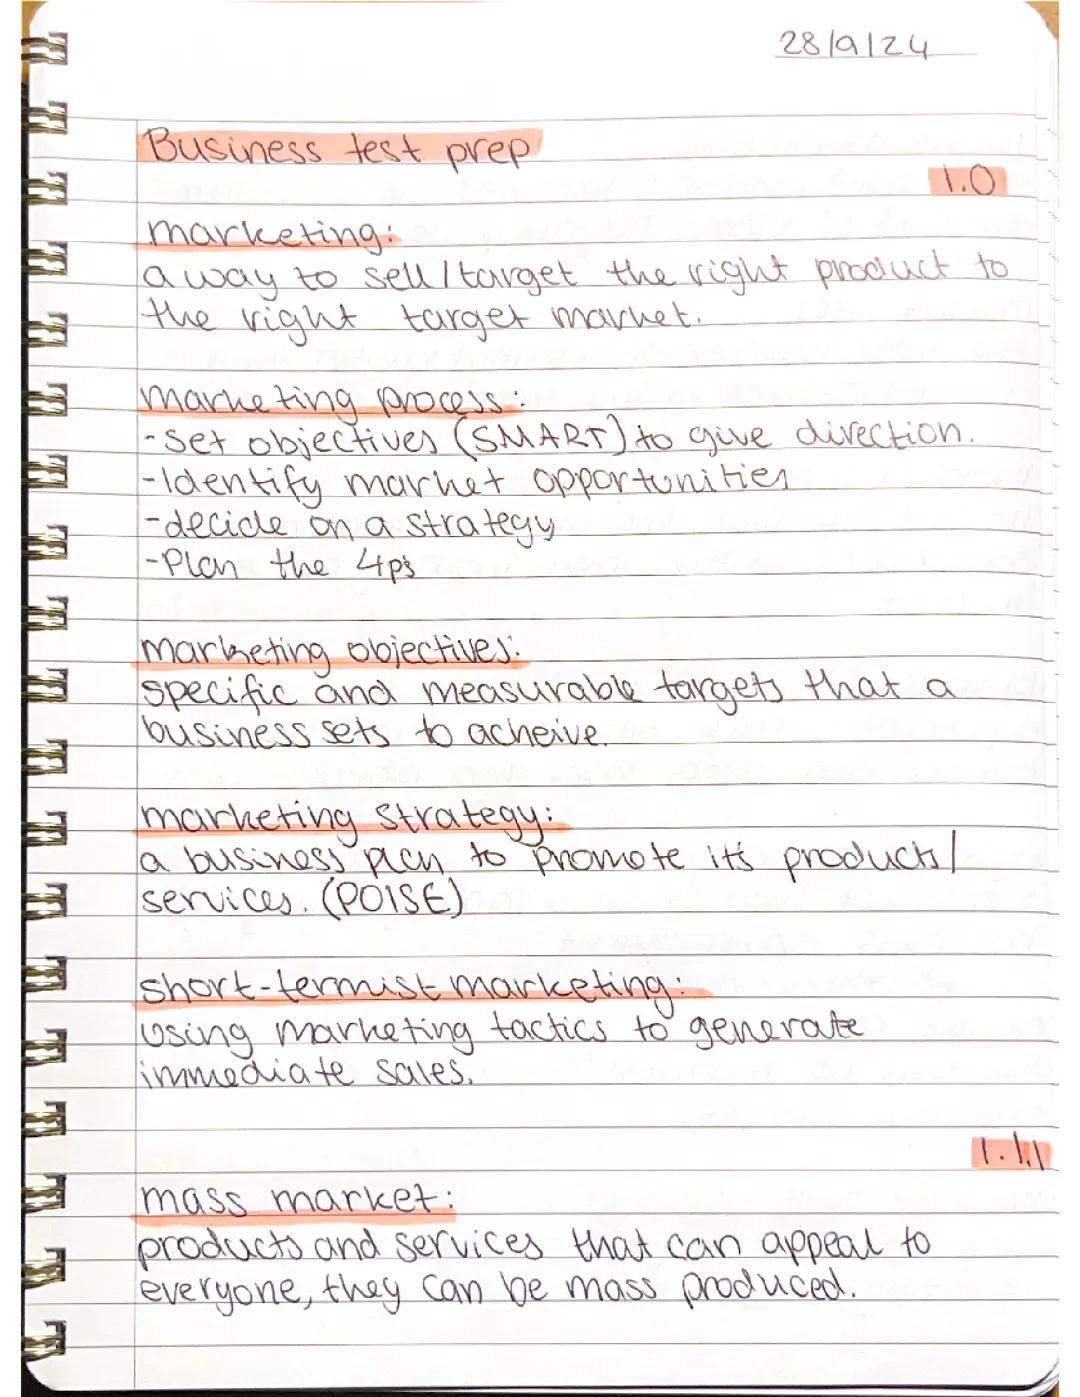 28/9/24
Business test prep
1.0
marketing:
a way to sell/target the right product to
the right target market.
marketing process:
-Set objectives (SMART) to give direction.
-Identify market opportunities
-decide on a strategy
-Plan the 4ps
marketing objectives:
specific and measurable targets that a
business sets to acheive.
marketing strategy:
a business plan to promote it's products/
services. (POISE)
short-termist marketing:
using marketing tactics to generate
immediate sales.
1.1.1
mass market:
products and services that can appeal to
everyone, they can be mass produced.